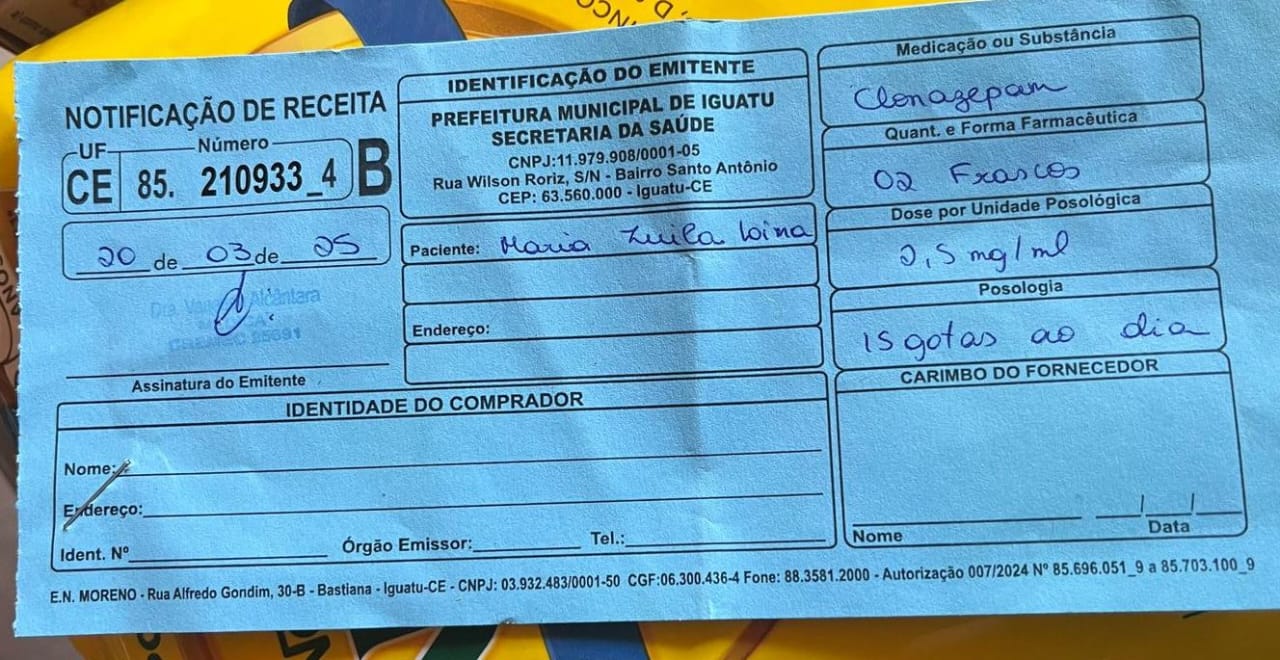 NOTIFICAÇÃO DE RECEITA
UF Número
CE 85. 210933_4 B
20 de 03 de 25
Dra. Alcântara
Assinatura do Emitente
IDENTIFICAÇÃO DO EMITENTE
PREFEITURA MUNICIPAL DE IGUATU
SECRETARIA DA SAÚDE
CNPJ:11.979.908/0001-05
Rua Wilson Roriz, S/N - Bairro Santo Antônio
CEP: 63.560.000 - Iguatu-CE
Paciente: Maria Zuila
Endereço:
Medicação ou Substância
Clonazepam
Quant. e Forma Farmacêutica
02 Frascos
Dose por Unidade Posológica
2,5 mg/ml
Posologia
15 gotas ao dia
IDENTIDADE DO COMPRADOR
Nome:
Endereço:
Ident. Nº Órgão Emissor: Tel.:
CARIMBO DO FORNECEDOR
Nome Data
E.N. MORENO - Rua Alfredo Gondim, 30-B - Bastiana - Iguatu-CE - CNPJ: 03.932.483/0001-50 CGF:06.300.436-4 Fone: 88.3581.2000 - Autorização 007/2024 Nº 85.696.051_9 a 85.703.100_9